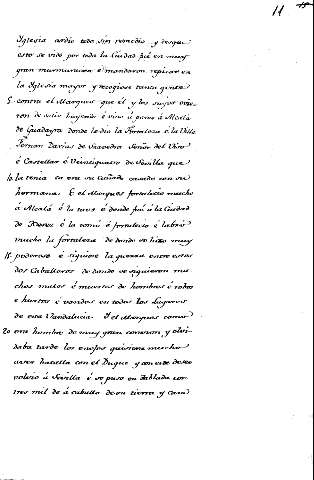 11
Iglesia ardio todo sin remedio y desque
esto se vido por toda la Ciudad fué en muy
gran murmuracion é mandaron repicar en
la Iglesia mayor y recogiose tanta gente
5. contra el Marques que él y los suyos ovie
ron de salir huyendo é vino á parar á Alcalá
de Guadayra donde le dio la Fortaleza é la Villa
Fernan Darias de Saavedra Señor del Viso
é Castellar é Veintiquatro de Sevilla que
10. la tenia
hermana. E el Marques fortalecio mucho
á Alcalá é la tuvo é donde fué á la Ciudad
de Xerez é la tomó é fortalecio é labró
mucho la fortaleza de donde se hizo muy
15. poderoso é siguiose la guerra entre estos
dos Caballeros de donde se siguieron mu
chos males é muertes de hombres é robos
é hurtos é vandos en todos los Lugares
de esta Vandalucia. Y el Marques como
20. era hombre de muy gran corazon, y olvi
daba tarde los enojos quisiera mucho
aver batalla con el Duque y con este deseo
volvió á Sevilla é se puso en Tablada con
tres mil de á caballo de su tierra y